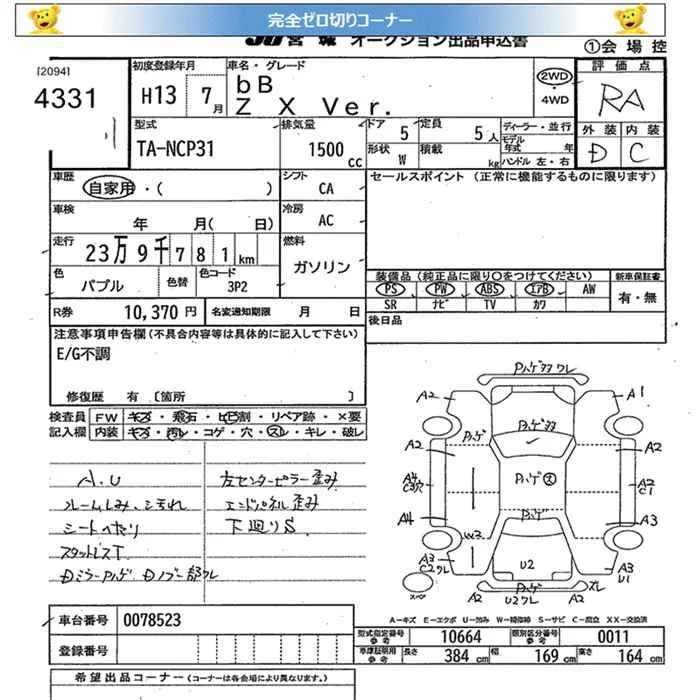 完全ゼロ切りコーナー
JU宮城 オークション出品申込書 ①会場控
[2094]
4331
初度登録年月 車名・グレード 評価点
H13 7月
bB
Z X Ver.
2WD
・4WD
RA
型式 排気量 ドア 定員 ディーラー・並行 外装 内装
TA-NCP31 1500cc 5 5人 モデル年式 年 D C
形状 W 積載 kg ハンドル 左・右
車歴 シフト セールスポイント (正常に機能するものに限ります)
自家用・( ) CA
車検 冷房
年 月( 日) AC
走行 燃料
23万9千781km ガソリン
色 色替 色コード
パブル 3P2
装備品(純正品に限り○をつけてください) 新車保証書
PS PW ABS エアB AW 有・無
SR ナビ TV カワ
R券 10,370円 名変通知期限 月 日 後日品
注意事項申告欄(不具合内容等は具体的に記入して下さい)
E/G不調
修復歴 有〔箇所 〕
検査員 FW キズ・飛石・ヒビ割・リペア跡・×要
記入欄 内装 キズ・汚レ・コゲ・穴・スレ・キレ・破レ
A.U
ルームしみ、汚れ
シートへたり
スタットレスT
左センターピラー歪み
エンドパネル歪み
下廻りS
A2 A1
A2 A2
A4 A2
C1
A4 A3
W2
A3 A3
U1
U2
A2 A2
A-キズ E-エクボ U-凹み W-補修跡 S-サビ C-腐立 XX-交換済
車台番号 0078523
登録番号
型式指定番号 参考 10664 類別区分番号 参考 0011
車庫証明用 参考 長さ 384cm 幅 169cm 高さ 164cm
希望出品コーナー(コーナーは各会場により異なります。)